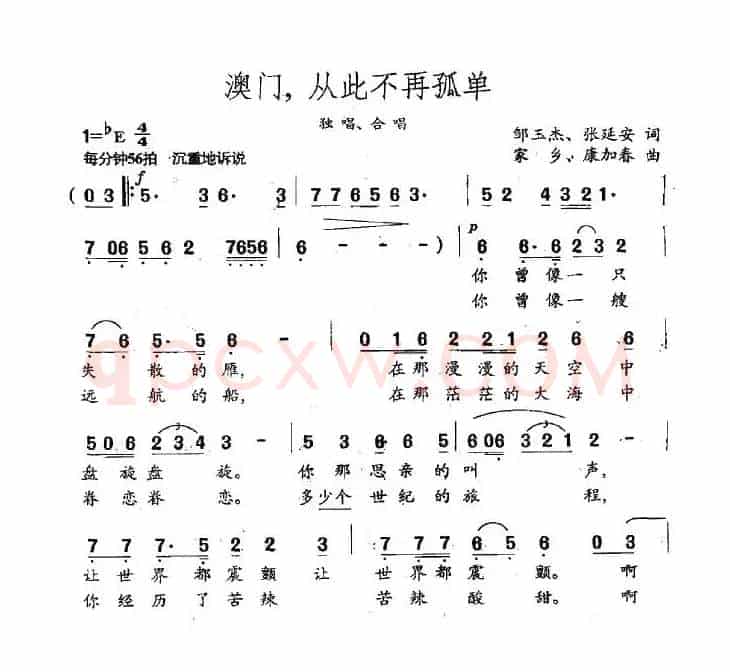 澳门，从此不再孤单
独唱、合唱
1=♭E 4/4
邹玉杰、张延安 词
每分钟56拍 沉重地诉说
家乡、康加春 曲
f
( 0 3 ‖: 5· 3 6· 3 | 7 7 6 5 6 3· | 5 2 4 3 2 1· |
p
7 0 6 5 6 2 7 6 5 6 | 6 - - - ) | 6 6· 6 2 3 2
你曾像一只
你曾像一艘
7 6 5· 5 6 - | 0 1 6 2 2 1 2 6 6
失散的雁，在那漫漫的天空中
远航的船，在那茫茫的大海中
5 0 6 2 3 4 3 - | 5 3 6 6 5 | 6 0 6 3 2 1 2 -
盘旋盘旋。你那思亲的叫声，
眷恋眷恋。多少个世纪的旅程，
7 7 7· 5 2 2 3 | 7 7 7 7 6 5 6 0 3
让世界都震颤让世界都震颤。啊
你经历了苦辣苦辣酸甜。啊
qpcxw.com